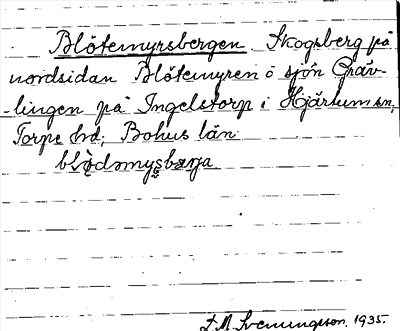 Blötemyrsbergen. Skogsberg på
nordsidan Blötemyren ö sjön Gräv-
-lingen på Ingelstorp i Hjärtum sn,
Torpe hd, Bohus län
blø̀dəmysbærja
F. M. Svenungsson. 1935.